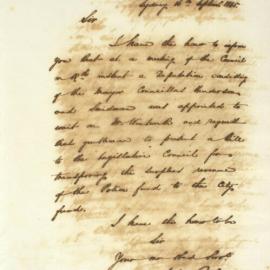 Sydney 16th Septemb 1845
Sir
I have the honor to inform
you that at a meeting of the Council
on instant a Deputation consisting
of the Mayor Councillors Henderson
and was appointed to
wait on Mr Wentworth and request
that gentleman to present a Bill
to the Legislative Council for
transferring the surplus revenue
of the Police fund to the City
fund.
I have the honor to be
Sir
Your mo Obed Servt